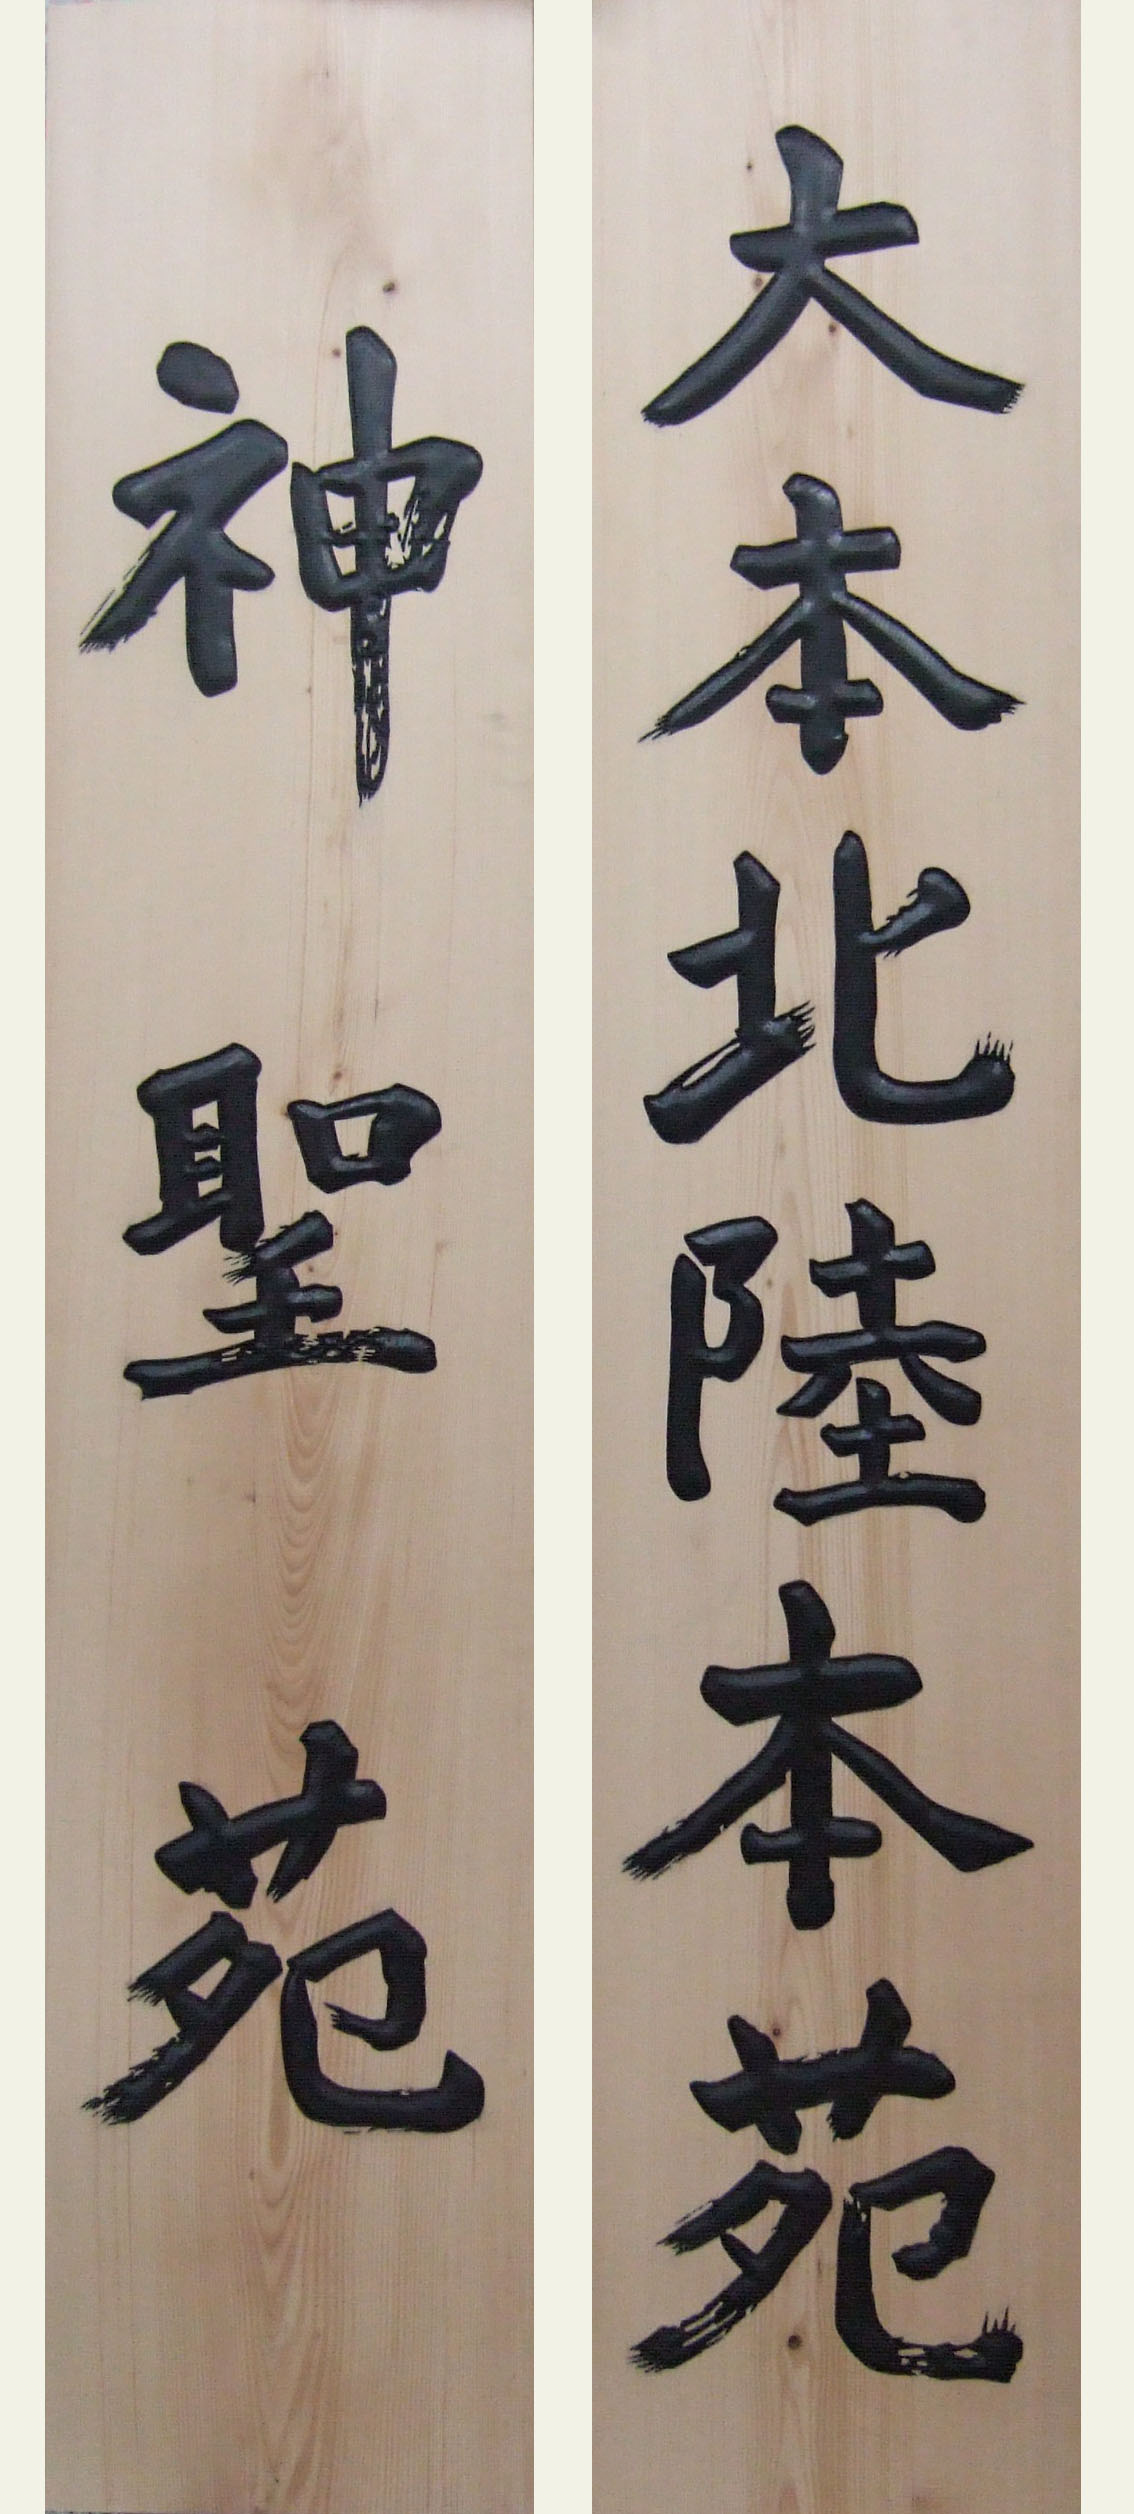 大本北陸本苑
神聖苑